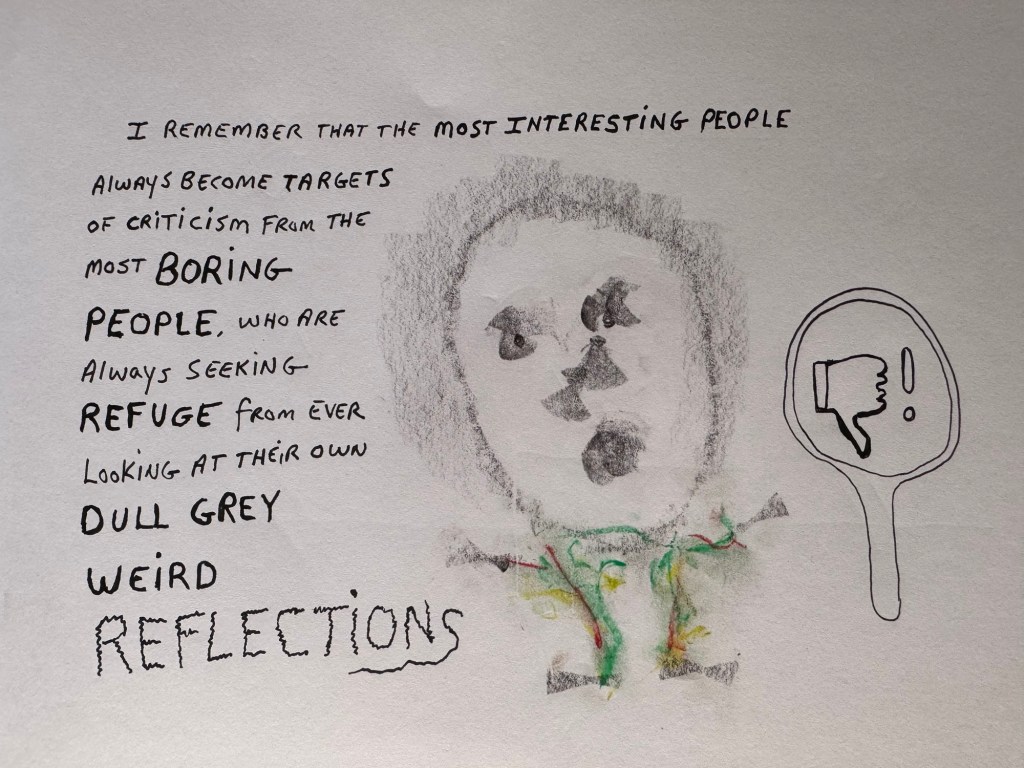 I REMEMBER THAT THE MOST INTERESTING PEOPLE
AlwAyS BECOME TARGETS
OF CRiTiCiSM FROM THE
MOST BORiNG
PEOPLE, WHO ARE
Always SEEKiNG
REFUGE fROM EVER
LOOKiNG AT THEiR OWN
DULL GREY
WEiRD
REFLECTiONS
!